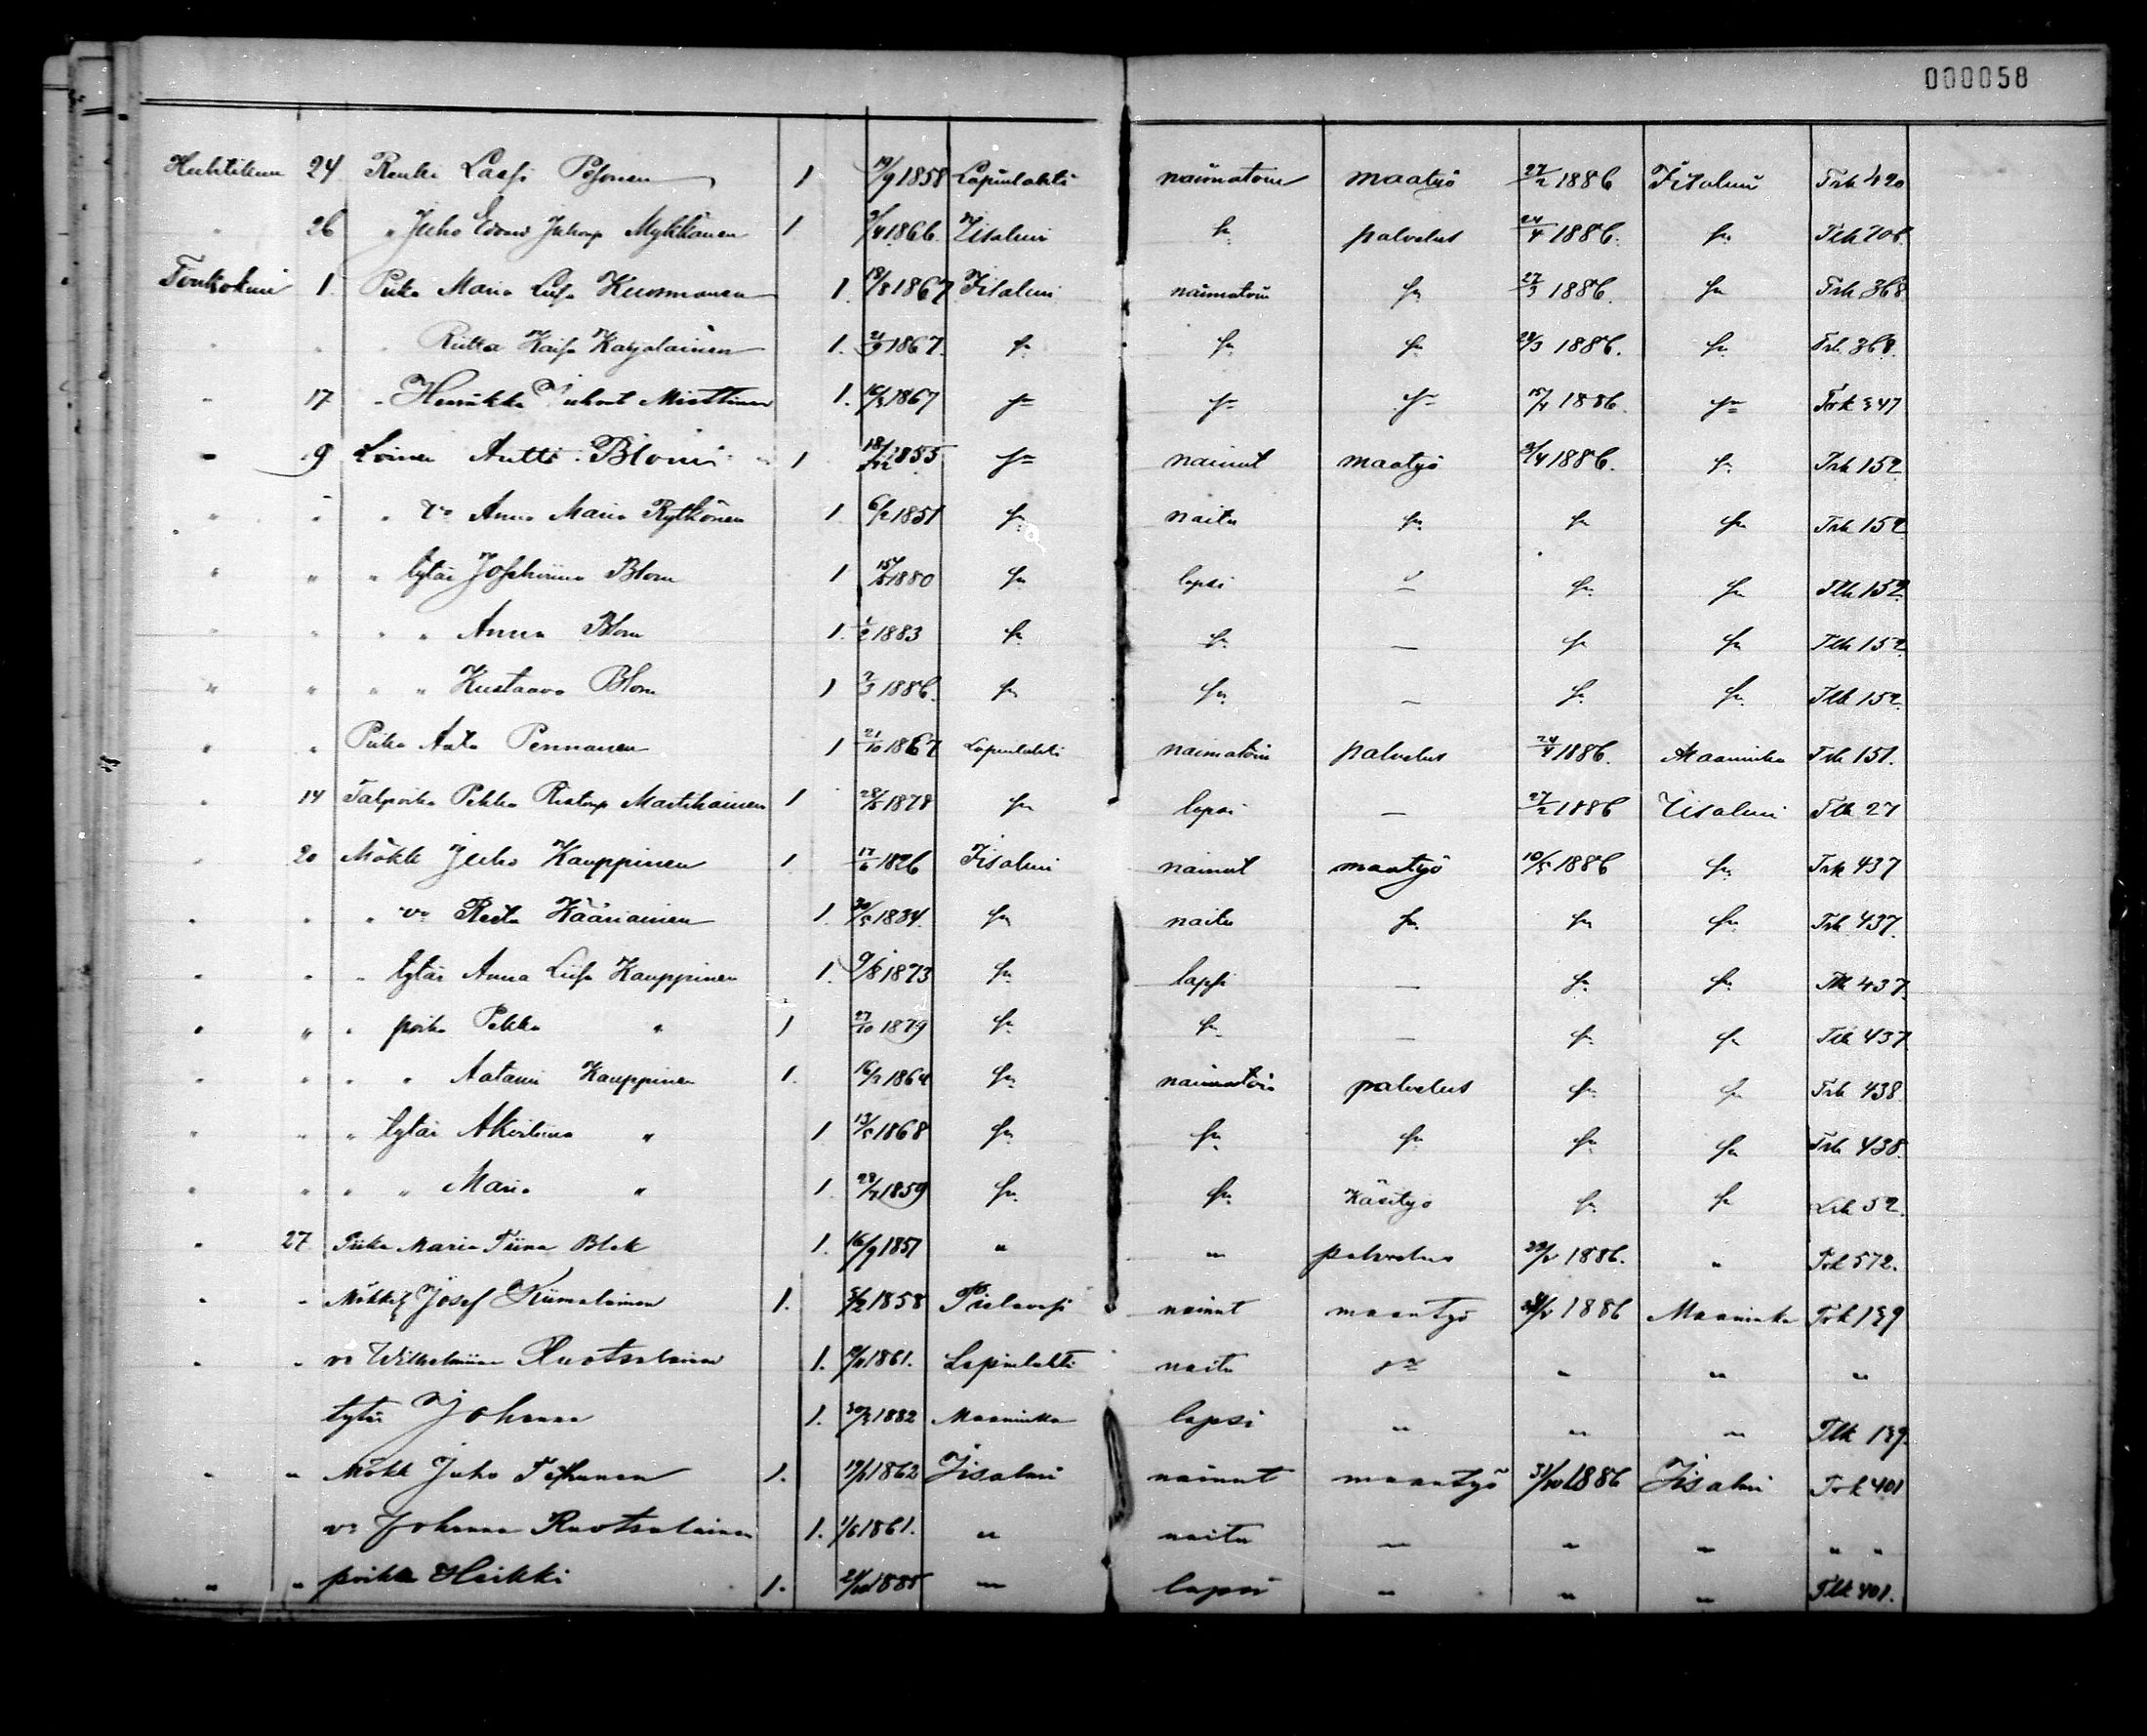 000058
Huhtikuu 24 Renki Lassi Pesonen 1 19/9 1858 Lapinlahti naimatoin maatyö 27/2 1886 Iisalmi Trk 420
" 26 " Juho Edvard Juhonp Mykkänen 1 4/4 1866. Iisalmi sn palvelus 24/4 1886. sn Tlk 706.
Toukokuu 1. Piika Maria Liisa Kuosmanen 1. 18/8 1867 Iisalmi naimatoin sn 27/3 1886. sn Trk 368
" " " Riitta Kaisa Karjalainen 1. 2/9 1867. sn sn sn 28/3 1886. sn Trk 368.
" 17 " Henrikka Juhont Miettinen 1. 16/3 1867 sn sn sn 15/4 1886. sn Trk 347
" 9 Loinen Antti Blomi 1 18/12 1855 sn nainut maatyö 2/4 1886. sn Trk 152
" " " vo Anna Maria Rytkönen 1 6/2 1851 sn naitu sn sn sn Trk 152
" " " tytär Josefiina Blom 1 15/5 1880 sn lapsi — sn sn Tlk 152.
" " " " Anna Blom 1. 1/2 1883 sn sn — sn sn Tlk 152.
" " " " Kustaava Blom 1 2/3 1886. sn sn — sn sn Tlk 152.
" " Piika Aato Pennanen 1 21/10 1867 Lapinlahti naimatoin palvelus 24/4 1886. Maaninka Trk 151.
" 14 Talpoika Pekka Ristonp Martikainen 1 28/5 1878 sn lapsi — 27/2 1886 Iisalmi Tlk 27
" 20 Mökk Juho Kauppinen 1 17/6 1826 Iisalmi nainut maatyö 10/5 1886 sn Trk 437
" " " vo Reeta Kääriainen 1. 30/5 1834. sn naitu sn sn sn Trk 437.
" " " tytär Anna Liisa Kauppinen 1. 9/8 1873 sn lapsi — sn sn Tlk 437.
" " " poika Pekka " 1 27/10 1879 sn sn — sn sn Tlk 437.
" " " " Aatami Kauppinen 1. 16/3 1864 sn naimatoin palvelus sn sn Trk 438
" " " tytär Akviliina " 1 13/5 1868 sn sn sn sn sn Trk 438.
" " " " Maria " 1. 28/7 1859 sn sn Käsityö sn sn Lrk 52.
" 27 Piika Maria Tiina Blek 1. 16/9 1851 " " palvelus 29/5 1886. " Trk 572.
" " Mökki Josef Kiimalainen 1. 3/2 1858 Pielavesi nainut maantyö 1886 Maaninka Trk 139
" " vo Wilhelmiina Ruotsalainen 1. 1861. Lapinlahti naitu sn " " "
tytär Johanna 1. 30/3 1882 Maaninka lapsi " " " Tlk 139.
" " Mökk Juho Tissinen 1. 1862 Iisalmi nainut maantyö 31/10 1886 Iisalmi Trk 401
vo Johanna Ruotsalainen 1. 1/6 1861. " naitu " " " " "
" " poika Heikki 1. 1885 " lapsi " " " Tlk 401.